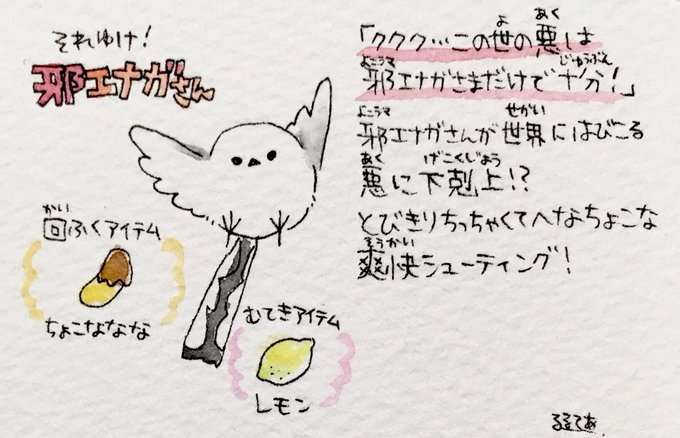 それゆけ!
邪エナガさん
「ククク…この世の悪は
邪エナガさまだけで十分!」
邪エナガさんが世界にはびこる
悪に下剋上!?
とびきりちっちゃくてへなちょこな
爽快シューティング!
回ふくアイテム
ちょこなななな
むてきアイテム
レモン